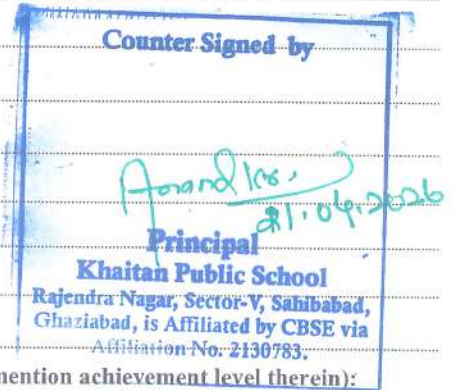 Counter Signed by
Anand Kr.
21.04.2026
Principal
Khaitan Public School
Rajendra Nagar, Sector-V, Sahibabad,
Ghaziabad, is Affiliated by CBSE via
Affiliation No. 2130783.
mention achievement level therein):